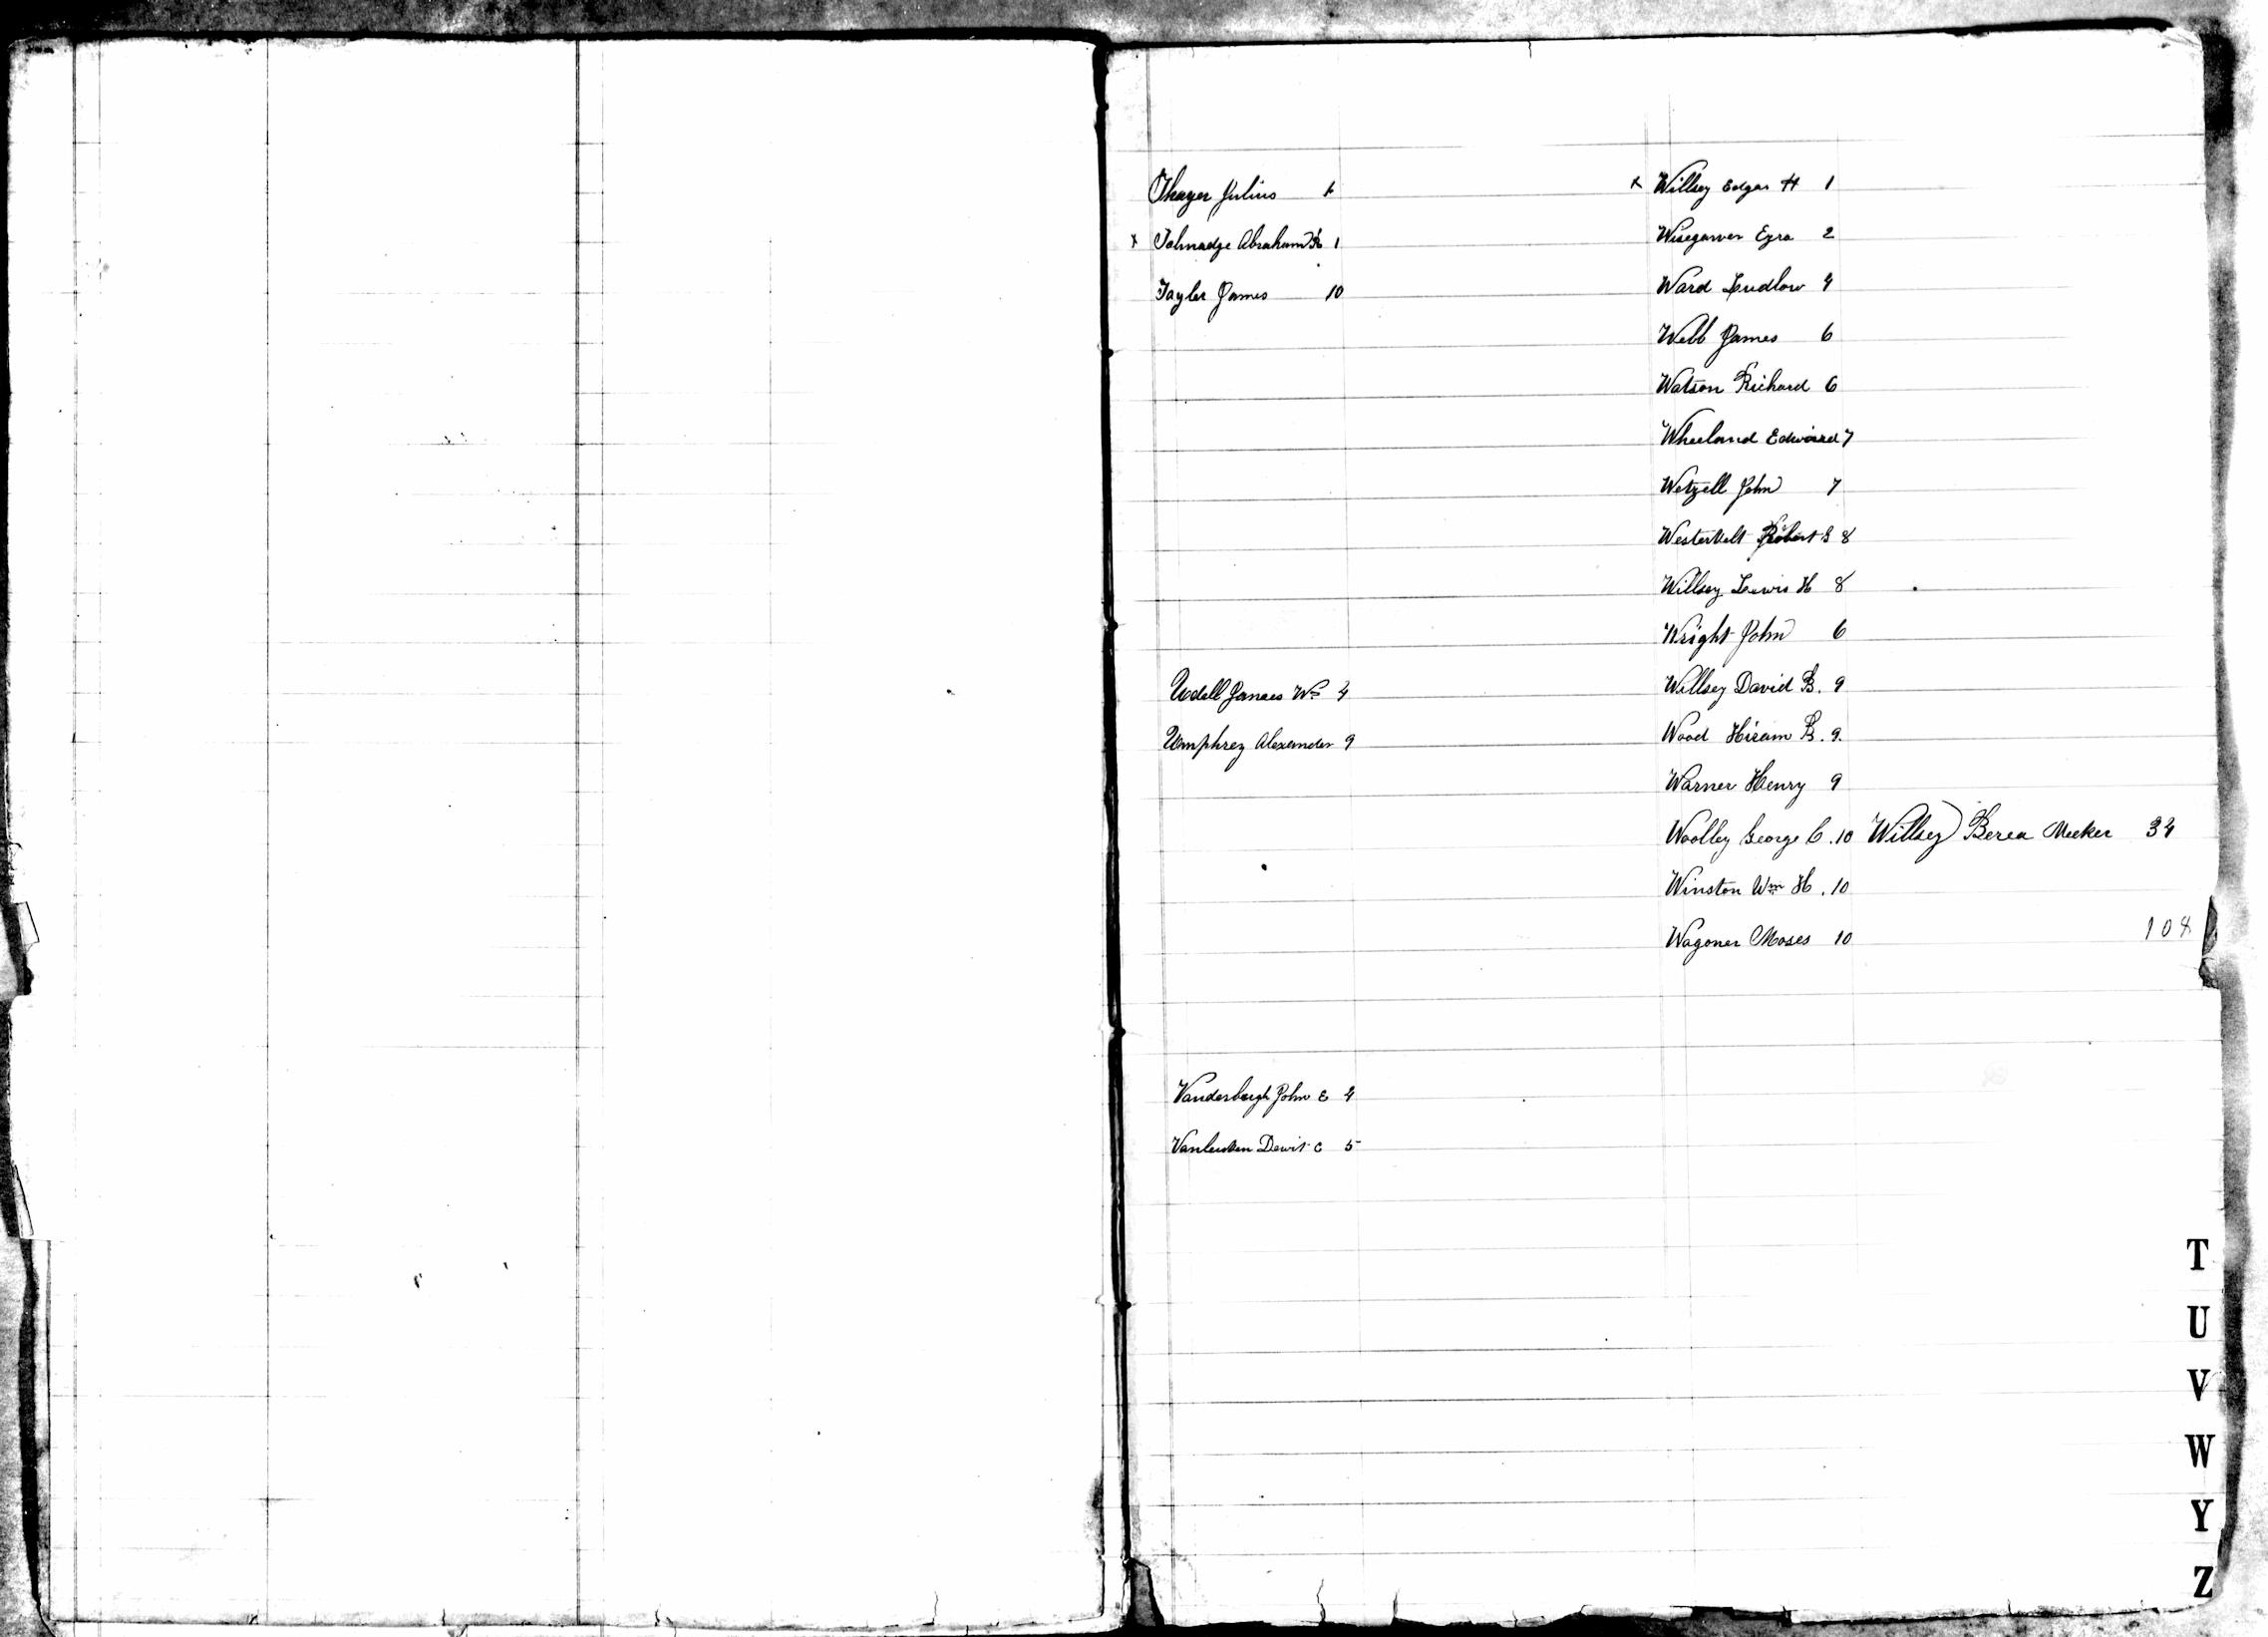 Thayer Julius
x Talmadge Abraham 1
Tayler James 10
Udell James Wm 4
Umphrey Alexander 9
Vanderburgh John E 4
Dewit C 5
x Willsey Edgar H 1
Wisegarver Ezra 2
Ward Ludlow 4
Webb James 6
Watson Richard 6
Wheeland Edward 7
Wetzell John 7
Westervelt Robert 8
Willsey Lewis H 8
Wright John 6
Willsey David B. 9
Wood Hiram B. 9.
Warner Henry 9
Woolley George C. 10 Willsey Berea Meeker 34
Winston Wm H. 10
Wagoner Moses 10
108
T
U
V
W
Y
Z